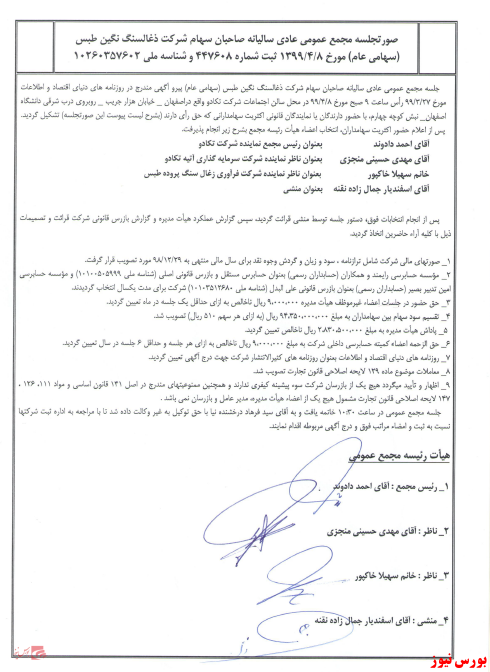 صورتجلسه مجمع عمومی عادی سالیانه صاحبان سهام شرکت ذغالسنگ نگین طبس
(سهامی عام) مورخ ۱۳۹۹/۴/۸ ثبت شماره ۴۴۷۶۰۸ و شناسه ملی ۱۰۲۶۰۳۵۷۶۰۲
جلسه مجمع عمومی عادی سالیانه صاحبان سهام شرکت ذغالسنگ نگین طبس (سهامی عام) پیرو آگهی مندرج در روزنامه های دنیای اقتصاد و اطلاعات
مورخ ۹۹/۳/۲۷ رأس ساعت ۹ صبح مورخ ۹۹/۴/۸ در محل سالن اجتماعات شرکت تکادو واقع دراصفهان _ خیابان هزار جریب _ روبروی درب شرقی دانشگاه
اصفهان_ نبش کوچه چهارم، با حضور دارندگان یا نمایندگان قانونی اکثریت سهامدارانی که حق رأی دارند (بشرح لیست پیوست این صورتجلسه) تشکیل گردید.
پس از اعلام حضور اکثریت سهامداران، انتخاب اعضاء هیأت رئیسه مجمع بشرح زیر انجام پذیرفت.
آقای احمد دادوند بعنوان رئیس مجمع نماینده شرکت تکادو
آقای مهدی حسینی منجزی بعنوان ناظر نماینده شرکت سرمایه گذاری آتیه تکادو
خانم سهیلا خاکپور بعنوان ناظر نماینده شرکت فرآوری زغال سنگ پروده طبس
آقای اسفندیار جمال زاده نقنه بعنوان منشی
پس از انجام انتخابات فوق، دستور جلسه توسط منشی قرائت گردید، سپس گزارش عملکرد هیأت مدیره و گزارش بازرس قانونی شرکت قرائت و تصمیمات
ذیل با کلیه آراء حاضرین اتخاذ گردید.
۱_ صورتهای مالی شرکت شامل ترازنامه ، سود و زیان و گردش وجوه نقد برای سال مالی منتهی به ۹۸/۱۲/۲۹ مورد تصویب قرار گرفت.
۲_ مؤسسه حسابرسی رایمند و همکاران (حسابداران رسمی) بعنوان حسابرس مستقل و بازرس قانونی اصلی (شناسه ملی ۱۰۱۰۰۵۰۵۹۹۹) و مؤسسه حسابرسی
امین تدبیر بصیر (حسابداران رسمی) بعنوان بازرس قانونی علی البدل (شناسه ملی ۱۰۱۰۳۵۱۲۶۸۰) شرکت برای مدت یکسال انتخاب گردیدند.
۳_ حق حضور در جلسات اعضاء غیرموظف هیأت مدیره ۹,۰۰۰,۰۰۰ ریال ناخالص به ازای حداقل یک جلسه در ماه تعیین گردید.
۴_ تقسیم سود سهام بین سهامداران به مبلغ ۹۴,۳۵۰,۰۰۰,۰۰۰ ریال (به ازای هر سهم ۵۱۰ ریال) تصویب شد.
۵_ پاداش هیأت مدیره به مبلغ ۲,۸۳۰,۵۰۰,۰۰۰ ریال ناخالص تعیین گردید.
۶_ حق الزحمه اعضاء کمیته حسابرسی داخلی شرکت به مبلغ ۹,۰۰۰,۰۰۰ ریال ناخالص به ازای هر جلسه و حداقل ۶ جلسه در سال تعیین گردید.
۷_ روزنامه های دنیای اقتصاد و اطلاعات بعنوان روزنامه های کثیرالانتشار شرکت جهت درج آگهی تعیین گردید.
۸_ معاملات موضوع ماده ۱۲۹ لایحه اصلاحی قانون تجارت تصویب شد.
۹_ اظهار و تأیید میگردد هیچ یک از بازرسان شرکت سوء پیشینه کیفری ندارند و همچنین ممنوعیتهای مندرج در اصل ۱۴۱ قانون اساسی و مواد ۱۱۱، ۱۲۶ ،
۱۴۷ لایحه اصلاحی قانون تجارت مشمول هیچ یک از اعضاء هیأت مدیره، مدیر عامل و بازرسان نمی باشد .
جلسه مجمع عمومی در ساعت ۱۰:۳۰ خاتمه یافت و به آقای سید فرهاد درخشنده نیا با حق توکیل به غیر وکالت داده شد تا با مراجعه به اداره ثبت شرکتها
نسبت به ثبت و امضاء مراتب فوق و درج آگهی مربوطه اقدام نمایند.
هیأت رئیسه مجمع عمومی
۱_ رئیس مجمع : آقای احمد دادوند
۲_ ناظر : آقای مهدی حسینی منجزی
۳_ ناظر : خانم سهیلا خاکپور
۴_ منشی : آقای اسفندیار جمال زاده نقنه
بورس نیوز